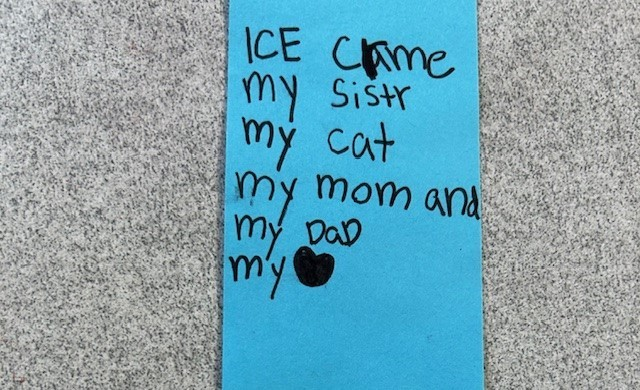 ICE Crme
my Sistr
my cat
my mom and
my DaD
my ♥